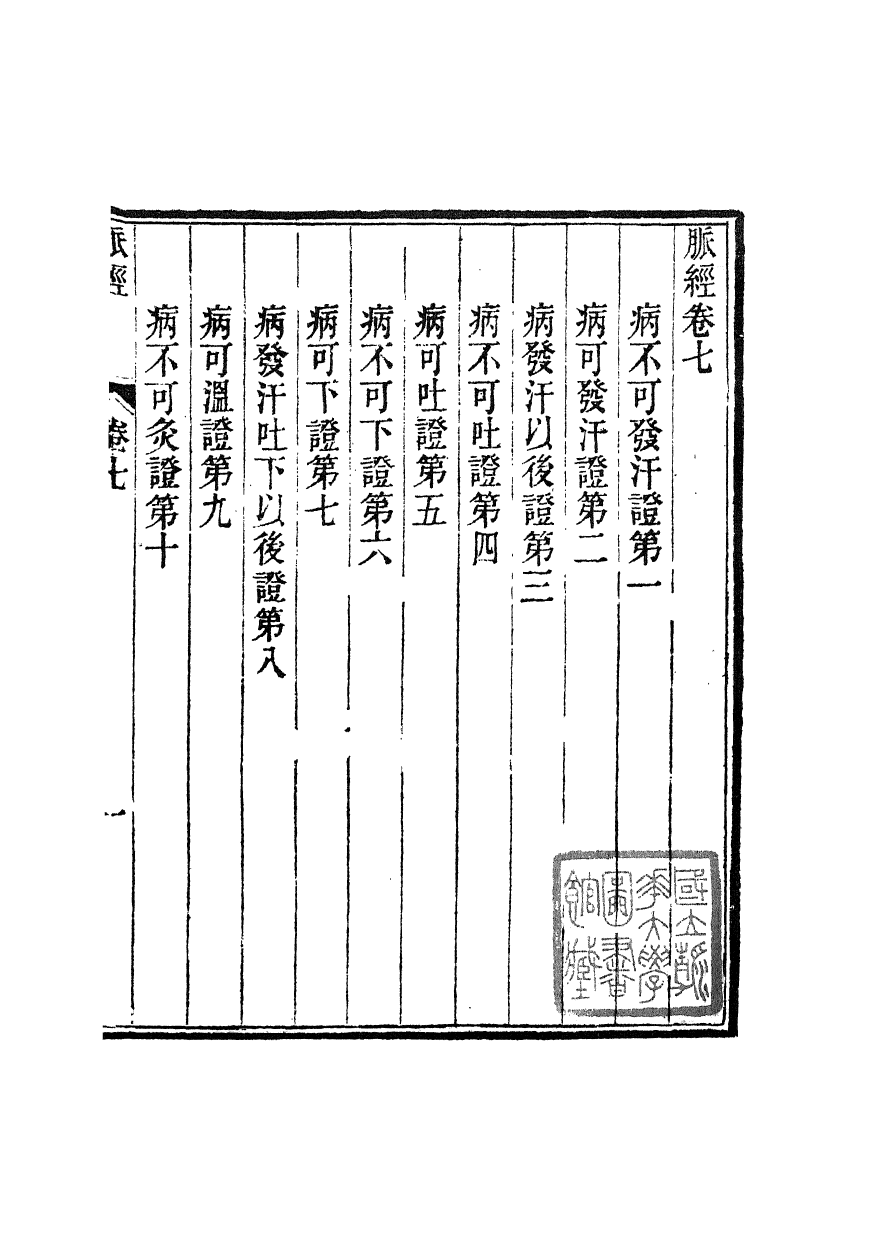 脈經卷七
病不可發汗證第一
病可發汗證第二
病發汗以後證第三
病不可吐證第四
病可吐證第五
病不可下證第六
病可下證第七
病發汗吐下以後證第八
病可溫證第九
病不可灸證第十
脈經
卷七
一
國立清
華大學
圖書
館藏